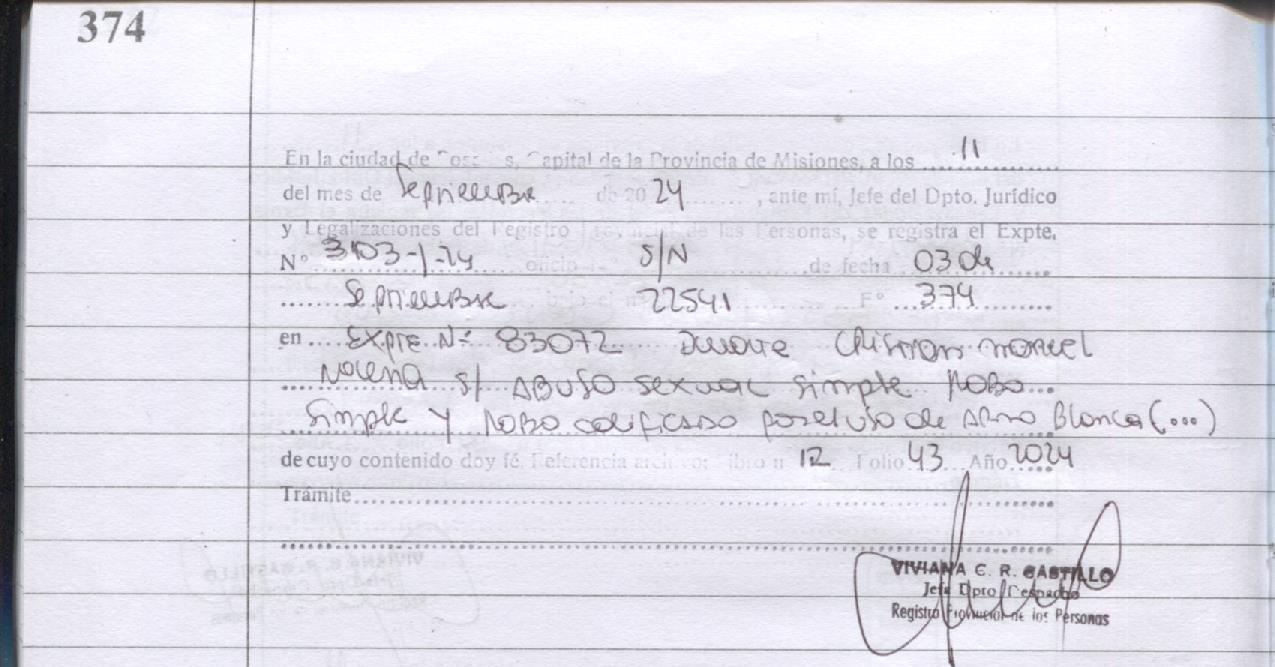 374
En la ciudad de Posadas, Capital de la Provincia de Misiones, a los 11
del mes de Septiembre de 2024, ante mí, Jefe del Dpto. Jurídico
y Legalizaciones del Registro Provincial de las Personas, se registra el Expte.
N° 3103-1-24 oficio S/N de fecha 03 de
Septiembre bajo el n° 22541 F° 374
en EXPTE. N° 83072 Cristian
S/ ABUSO Sexual Simple Robo
Simple y Robo calificado por el uso de Arma Blanca (...)
de cuyo contenido doy fé. Referencia archivo: Libro n 12 Folio 43 Año 2024
Trámite
VIVIANA C. R. CASTILLO
Jefa Dpto Despacho
Registro Provincial de los Personas